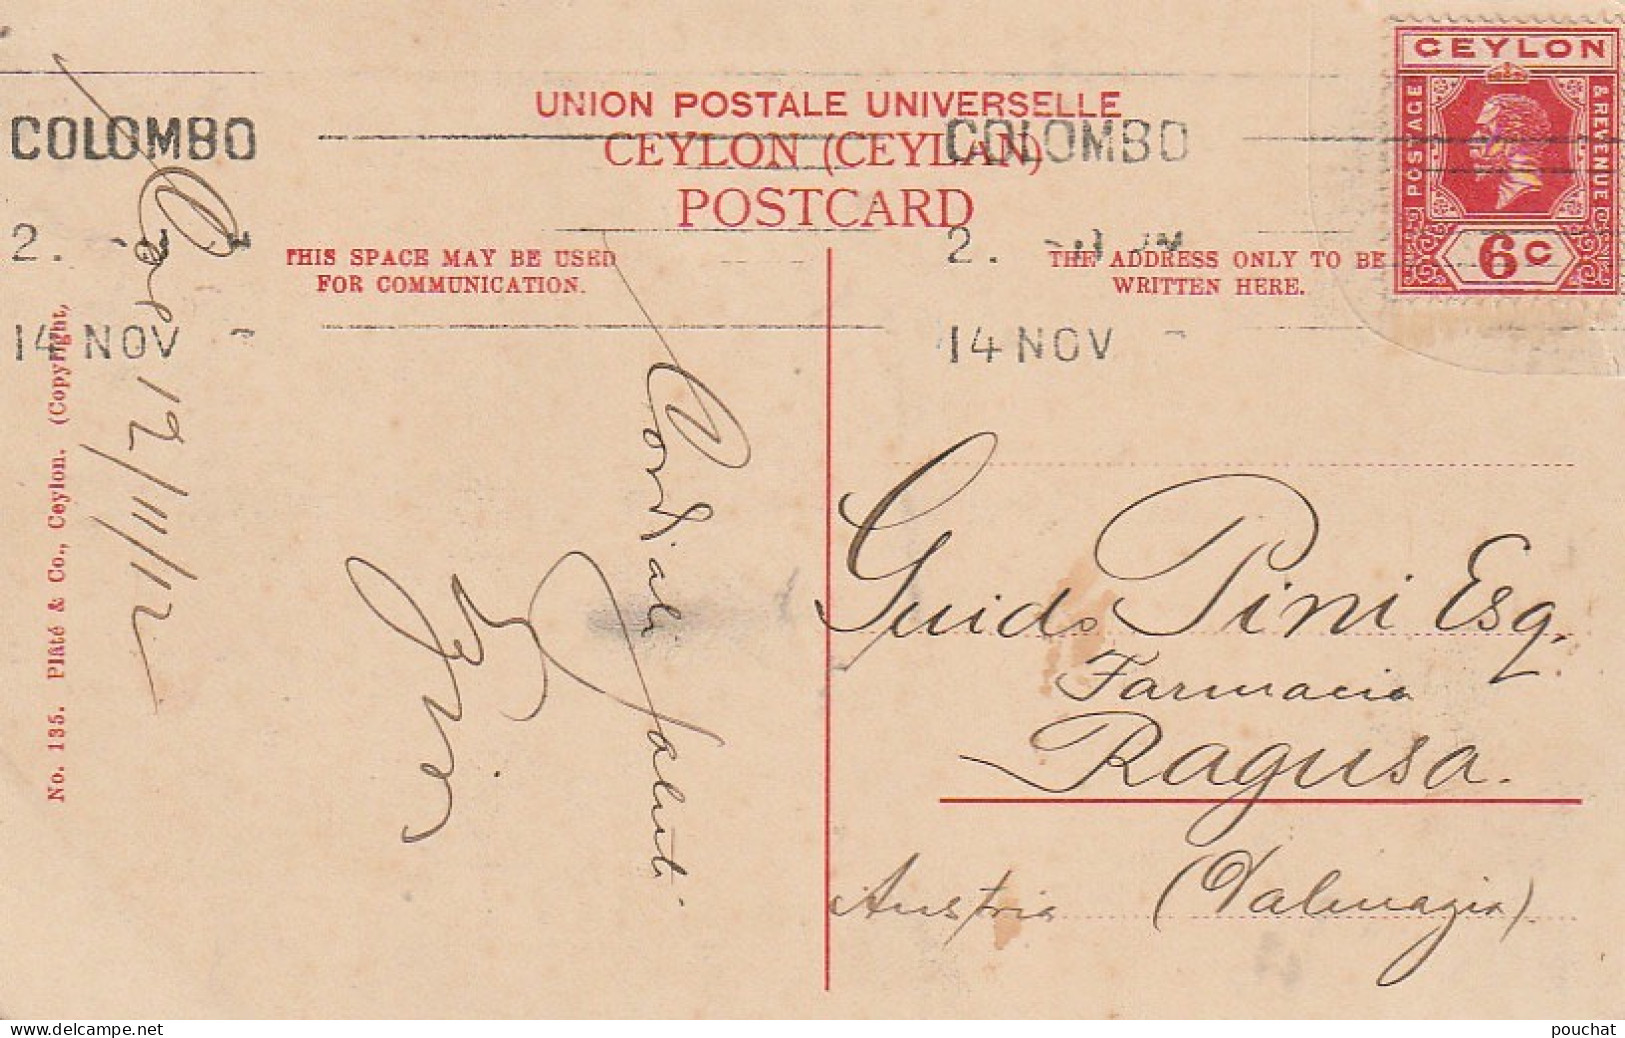 UNION POSTALE UNIVERSELLE
CEYLON (CEYLAN)
POSTCARD
THIS SPACE MAY BE USED
FOR COMMUNICATION.
THE ADDRESS ONLY TO BE
WRITTEN HERE.
CEYLON
POSTAGE
& REVENUE
6 C
COLOMBO
2.
14 NOV
COLOMBO
2.
14 NOV
No. 135. Plâté & Co., Ceylon. (Copyright,
12/11/12
Cordiali
Saluti
Guido Pini Esq.
Farmacia
Ragusa.
Austria (Dalmazia)
delcampe.net
pouchat